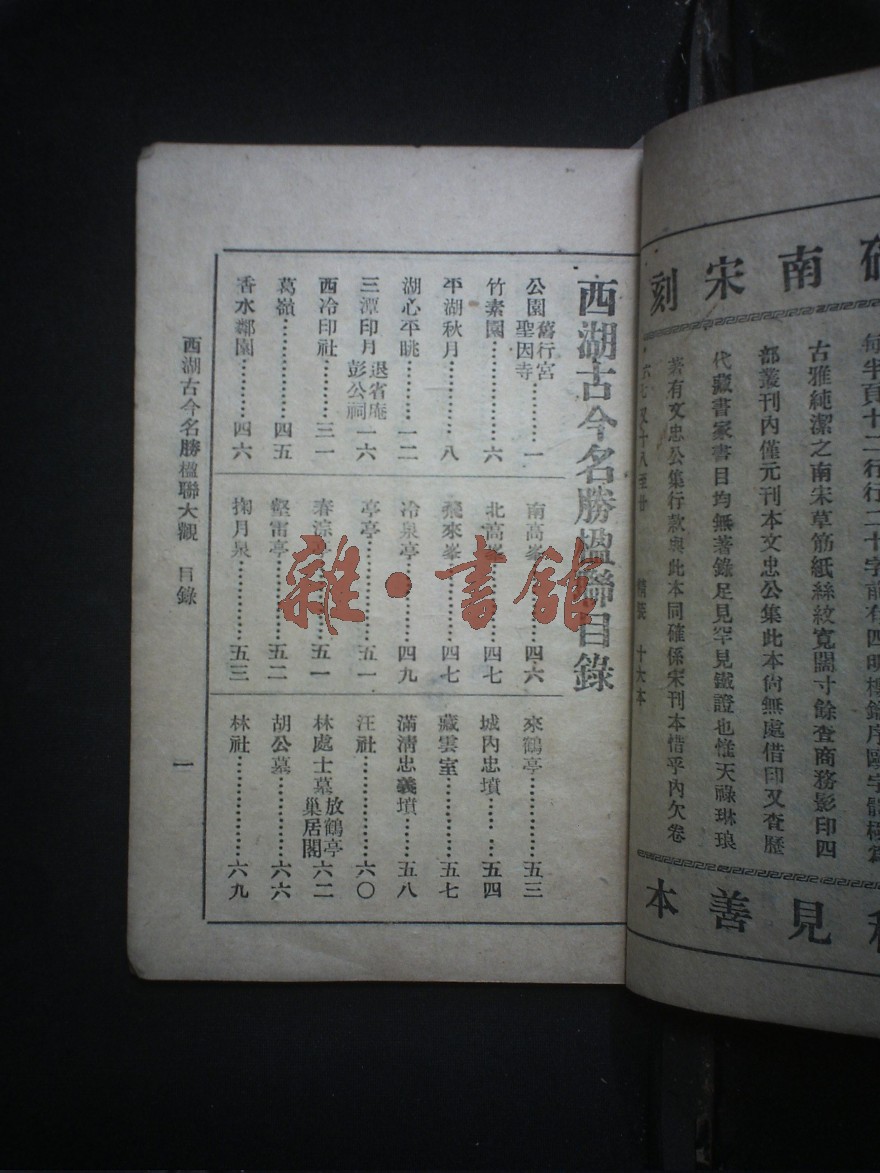 西湖古今名勝楹聯目錄
公園 舊行宮 聖因寺……一
竹素園……六
平湖秋月……八
湖心平眺……一二
三潭印月 退省庵 彭公祠 一六
西冷印社……三一
葛嶺……四五
香水鄰園……四六
南高峯……四六
北高峯……四七
飛來峯……四七
冷泉亭……四九
亭亭……五一
春淙亭……五一
壑雷亭……五二
掬月泉……五三
來鶴亭……五三
城內忠墳……五四
藏雲室……五七
滿清忠義墳……五八
汪社……六〇
林處士墓 放鶴亭 巢居閣 六二
胡公墓……六六
林社……六九
西湖古今名勝楹聯大觀 目錄
一
南宋刻
每半頁十二行行二十字前有四明樓鑰序
古雅純潔之南宋草筋紙絲紋寬闊寸餘查商務影印四
部叢刊內僅元刊本文忠公集此本尙無處借印又查歷
代藏書家書目均無著錄足見罕見鐵證也惟天祿琳琅
若有文忠公集行款與此本同確係宋刊本惜乎內欠卷
十六本
見善本
雜·書館